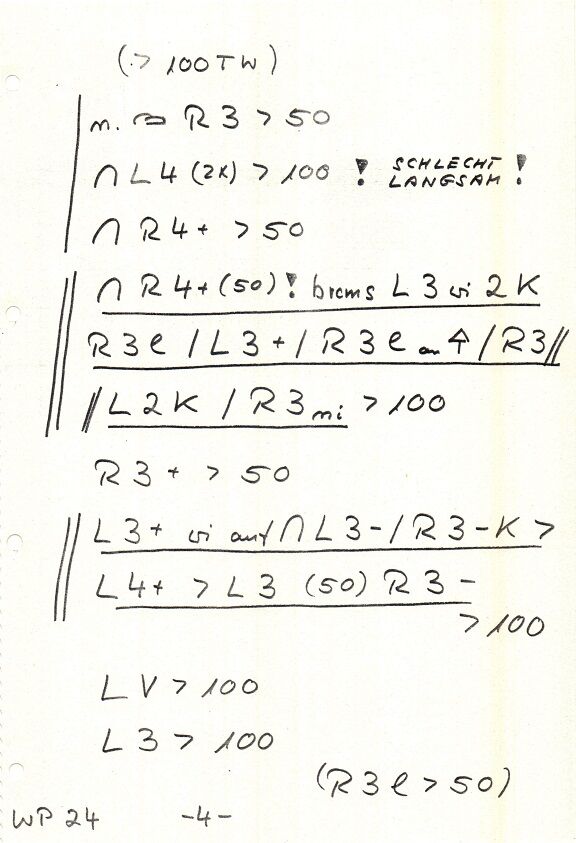 (> 100 TW)
n. ⌓ R3 > 50
∩ L4 (2K) > 100 ! SCHLECHT LANGSAM !
∩ R4+ > 50
∩ R4+ (50) ! brems L3 wi 2K
R3e / L3+ / R3e an ↑ / R3 //
// L2K / R3 mi > 100
R3+ > 50
L3+ wi auf ∩ L3- / R3-K >
L4+ > L3 (50) R3-
> 100
LV > 100
L3 > 100
(R3e > 50)
WP 24 -4-